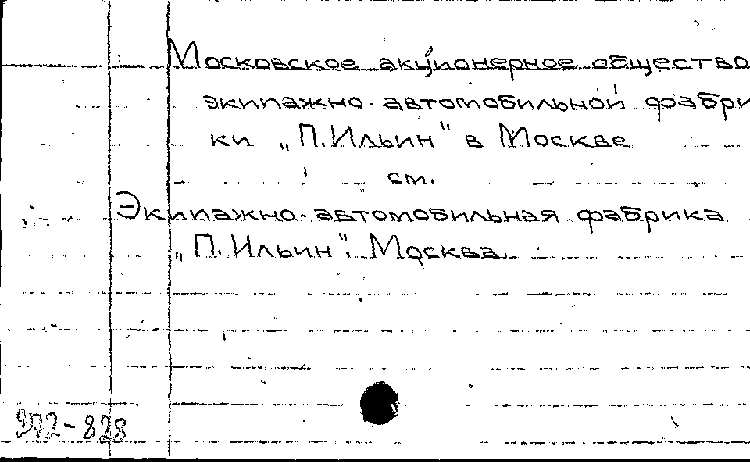 Московское акционерное общество
экипажно-автомобильной фабри
ки „П.Ильин" в Москве
см.
Экипажно-автомобильная фабрика
„П.Ильин". Москва.